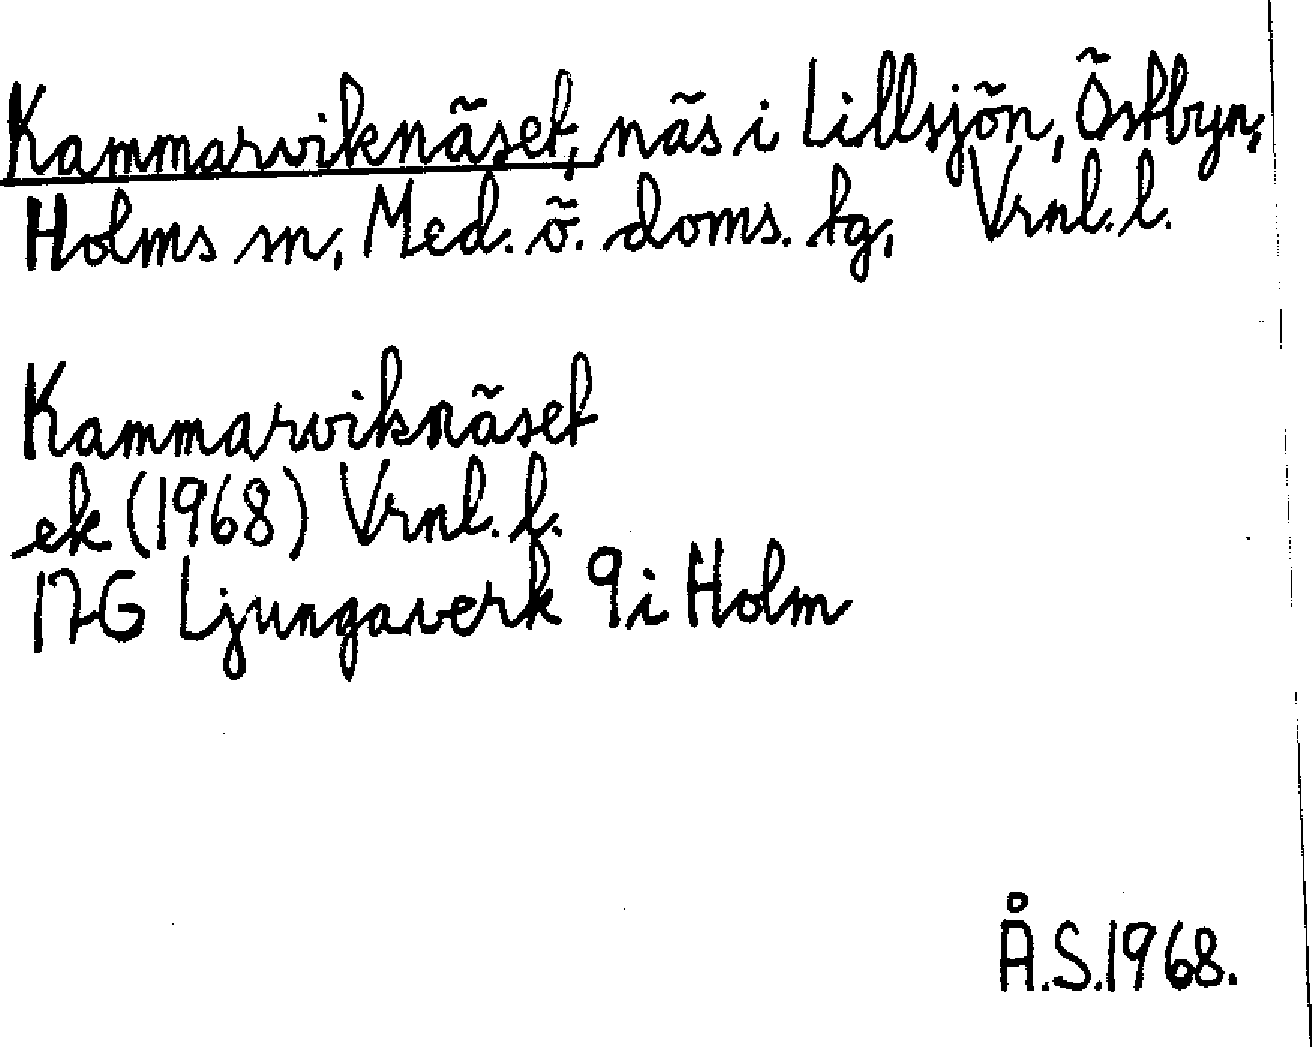 Kammarviknäset, näs i Lillsjön, Östbyn,
Holms sn, Med. ö. doms. tg, Vrnl. l.
Kammarviknäset
ek (1968) Vrnl. l.
17G Ljungaverk 9i Holm
Å.S.1968.